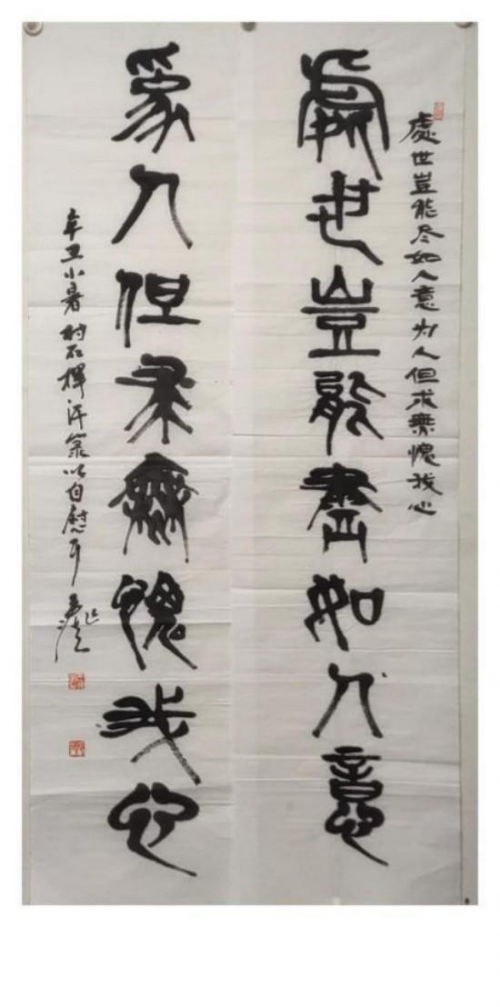 處世豈能尽如人意为人但求無愧我心
處世豈能盡如人意
爲人但求無愧我心
辛丑小暑 村石揮汗篆以自慰耳